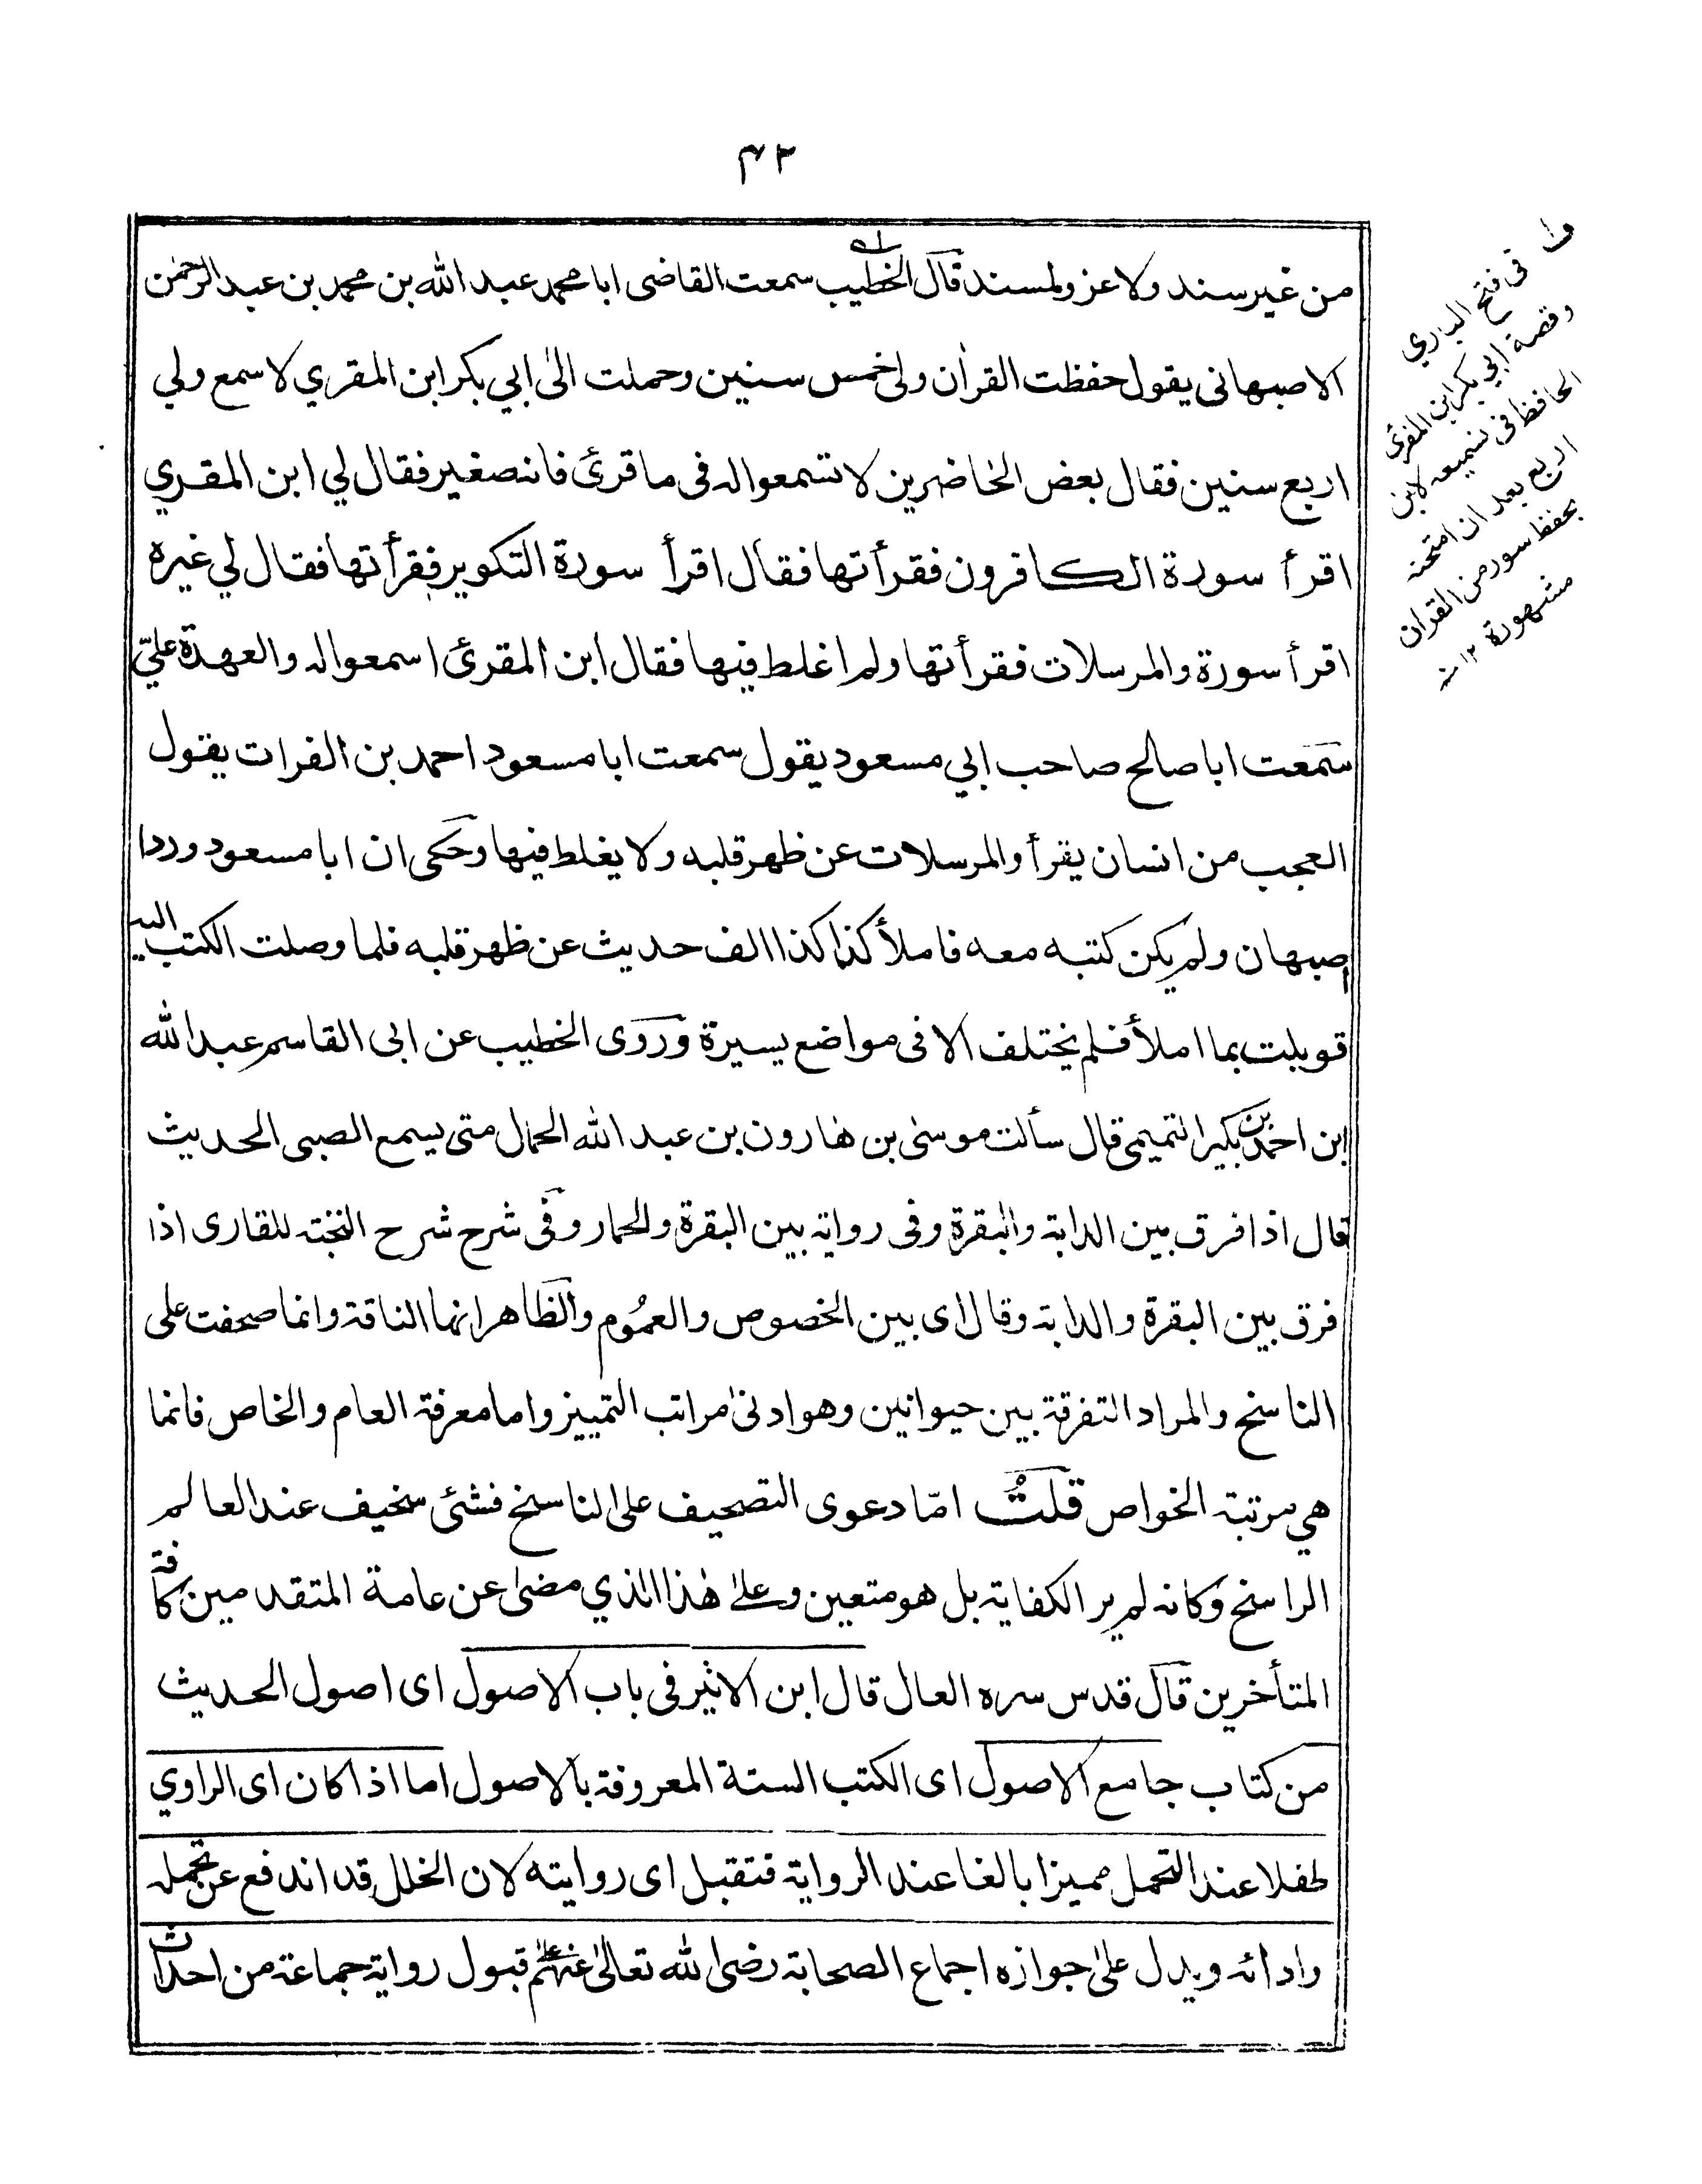 ٤٢
من غير سند ولا عز ولمسند قال الخطيب سمعت القاضى ابا محمد عبد الله بن محمد بن عبد الرحمٰن
الاصبهانى يقول حفظت القراٰن ولى خمس سنين وحملت الىٰ ابي بكر ابن المقري لاسمع ولي
اربع سنين فقال بعض الحاضرين لا تسمعوا له فى ما قرئ فانه صغير فقال لي ابن المقري
اقرأ سورة الكافرون فقرأتها فقال اقرأ سورة التكوير فقرأتها فقال لي غيره
اقرأ سورة والمرسلات فقرأتها ولم اغلط فيها فقال ابن المقرئ اسمعوا له والعهدة عليّ
سمعت ابا صالح صاحب ابي مسعود يقول سمعت ابا مسعود احمد بن الفرات يقول
العجب من انسان يقرأ والمرسلات عن ظهر قلبه ولا يغلط فيها وحكى ان ابا مسعود ورد ا
صبهان ولم يكن كتبه معه فاملأ كذا كذا الف حديث عن ظهر قلبه فلما وصلت الكتب اليه
قوبلت بما املأ فلم يختلف الا فى مواضع يسيرة وروى الخطيب عن ابى القاسم عبد الله
ابن احمد بن بكير التميمى قال سألت موسىٰ بن هٰارون بن عبد الله الحمال متى يسمع الصبى الحديث
قال اذا فرق بين الدابة والبقرة وفى رواية بين البقرة والحمار وفى شرح شرح النخبة للقارى اذا
فرق بين البقرة والدابة وقال اى بين الخصوص والعمُوم والظاهر انها الناقة وانما صحفت على
الناسخ والمراد التفرقة بين حيوانين وهو ادنىٰ مراتب التمييز واما معرفة العام والخاص فانما
هي مرتبة الخواص قلتُ امّا دعوى التصحيف على الناسخ فشئ سخيف عند العالم
الراسخ وكانه لم ير الكفاية بل هو متعين وعلىٰ هٰذا الذي مضىٰ عن عامة المتقدمين كافة
المتأخرين قال قدس سره العال قال ابن الاثير فى باب الاصول اى اصول الحديث
من كتاب جامع الاصول اى الكتب الستة المعروفة بالاصول اما اذا كان اى الراوي
طفلا عند التحمل مميزا بالغا عند الرواية فتقبل اى روايته لان الخلل قد اندفع عن تحمله
وادائه ويدل علىٰ جوازه اجماع الصحابة رضى الله تعالىٰ عنهم علىٰ قبول رواية جماعة من احداث
فى فتح الباري
وقصة ابي بكر ابن المقرئ
الحافظ فى تسميعه لابن
اربع بعد ان امتحنه
بحفظ سور من القران
مشهورة ١٢ منه